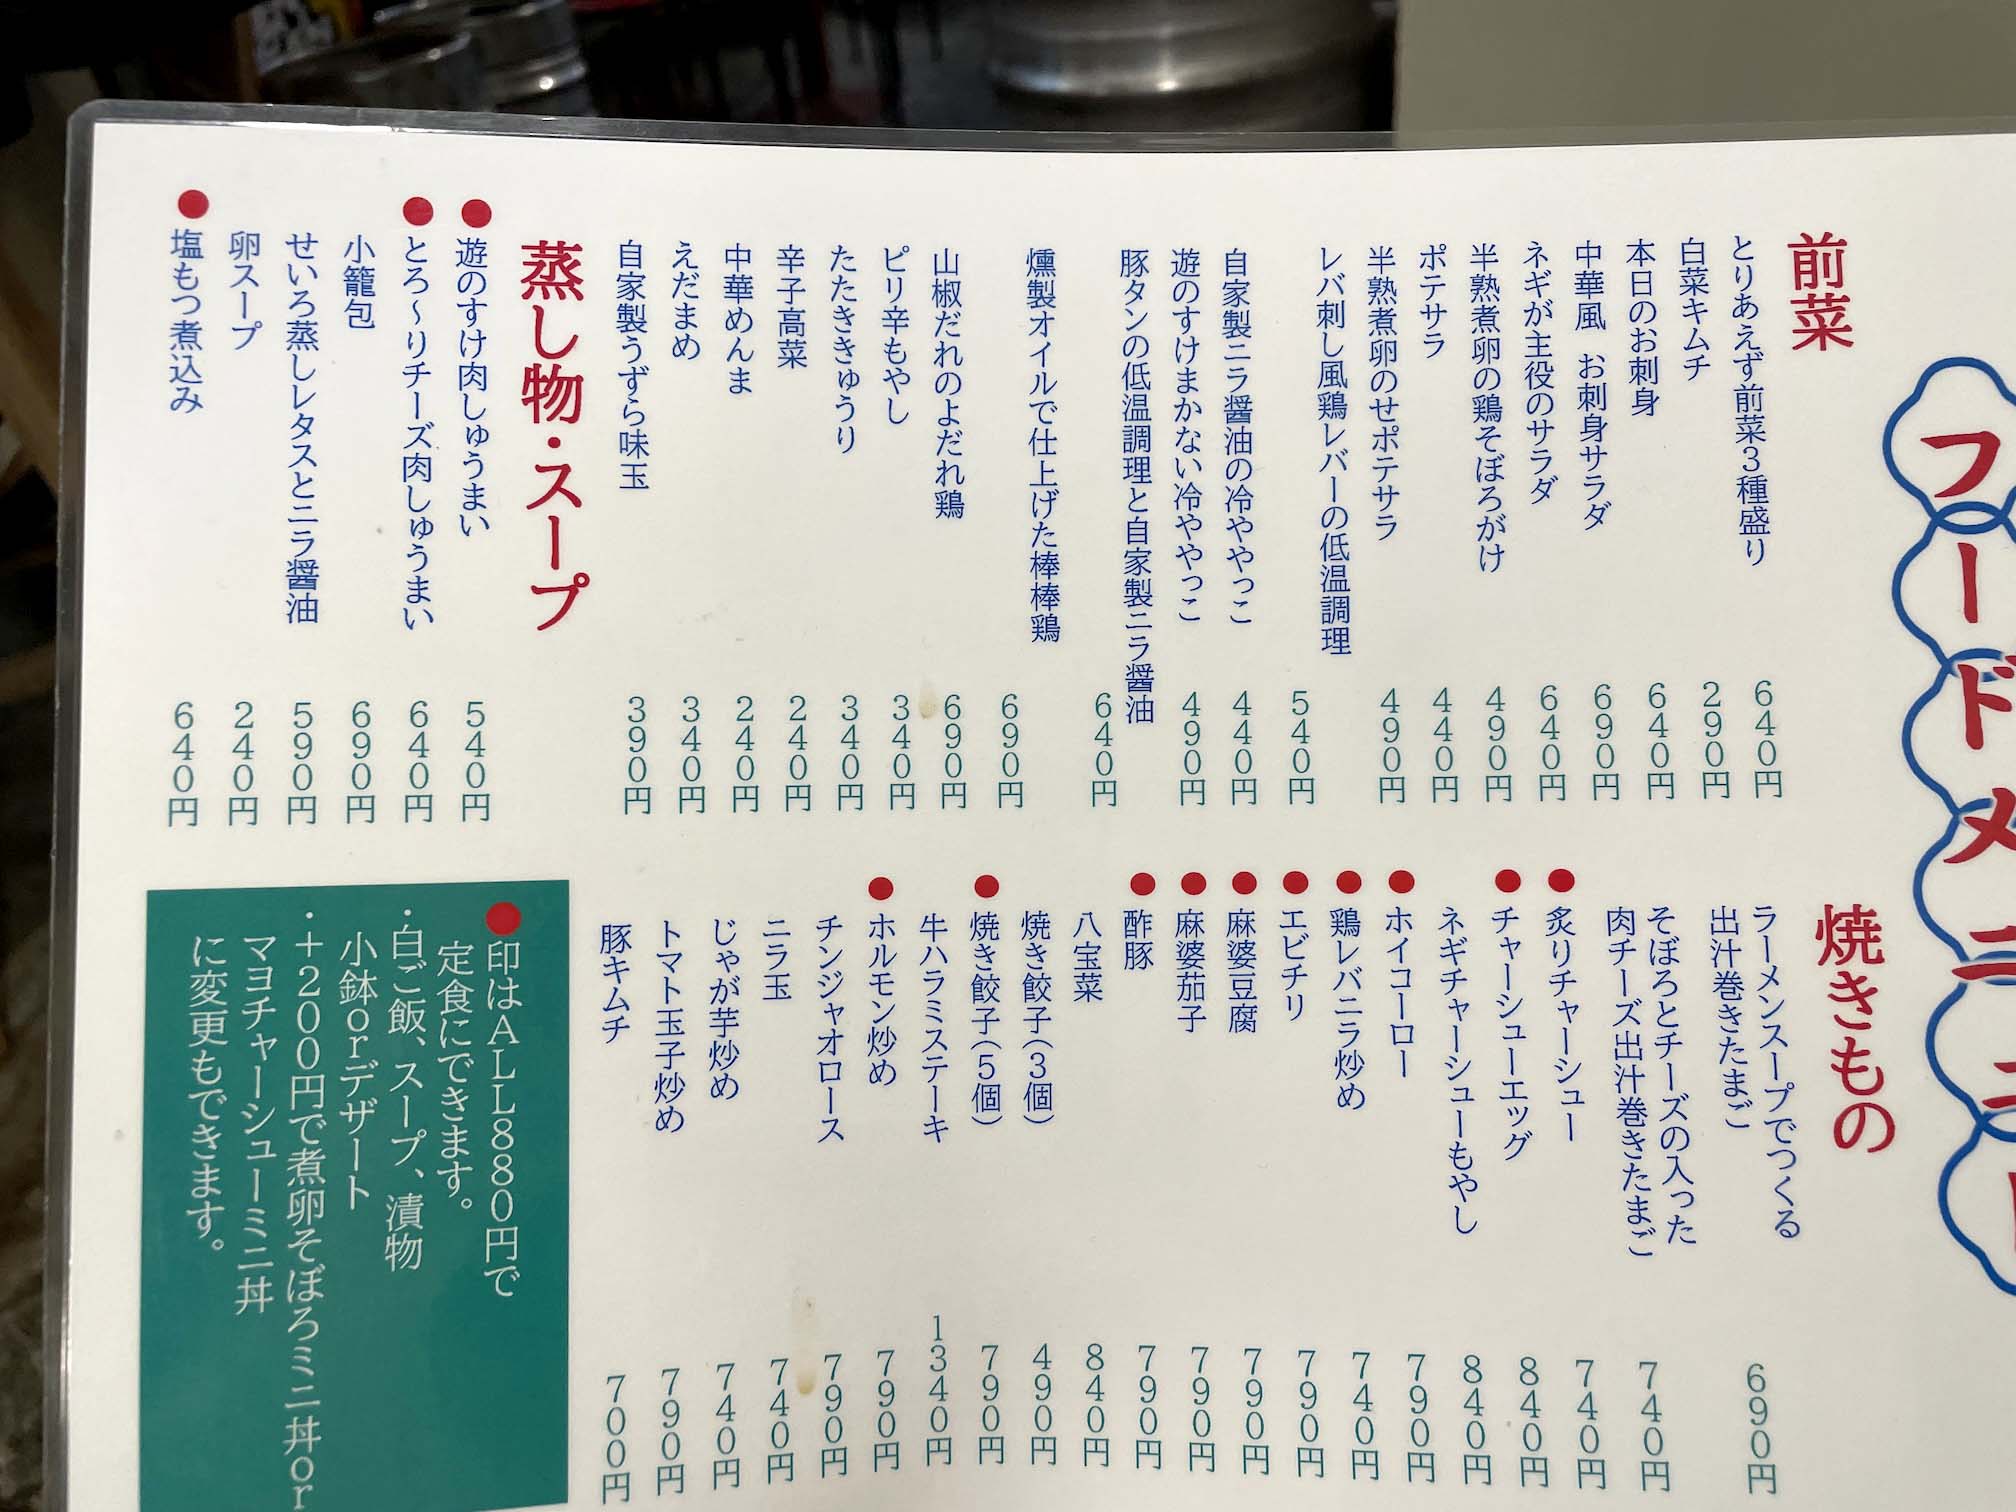 フードメニュー
前菜
とりあえず前菜3種盛り 640円
白菜キムチ 290円
本日のお刺身 640円
中華風 お刺身サラダ 690円
ネギが主役のサラダ 640円
半熟煮卵の鶏そぼろがけ 490円
ポテサラ 440円
半熟煮卵のせポテサラ 490円
レバ刺し風鶏レバーの低温調理 540円
自家製ニラ醤油の冷ややっこ 440円
遊のすけまかない冷ややっこ 490円
豚タンの低温調理と自家製ニラ醤油 640円
燻製オイルで仕上げた棒棒鶏 690円
山椒だれのよだれ鶏 690円
ピリ辛もやし 340円
たたききゅうり 340円
辛子高菜 240円
中華めんま 240円
えだまめ 340円
自家製うずら味玉 390円
蒸し物・スープ
●遊のすけ肉しゅうまい 540円
●とろ～りチーズ肉しゅうまい 640円
小籠包 690円
せいろ蒸しレタスとニラ醤油 590円
卵スープ 240円
●塩もつ煮込み 640円
焼きもの
ラーメンスープでつくる
出汁巻きたまご 690円
そぼろとチーズの入った
肉チーズ出汁巻きたまご 740円
●炙りチャーシュー 740円
●チャーシューエッグ 840円
ネギチャーシューもやし 840円
●ホイコーロー 790円
●鶏レバニラ炒め 740円
●エビチリ 790円
●麻婆豆腐 790円
●麻婆茄子 790円
●酢豚 790円
八宝菜 840円
焼き餃子(3個) 490円
●焼き餃子(5個) 790円
牛ハラミステーキ 1340円
●ホルモン炒め 790円
チンジャオロース 790円
ニラ玉 740円
じゃが芋炒め 740円
トマト玉子炒め 790円
豚キムチ 700円
●印はALL880円で
定食にできます。
・白ご飯、スープ、漬物
小鉢orデザート
・+200円で煮卵そぼろミニ丼or
マヨチャーシューミニ丼
に変更もできます。